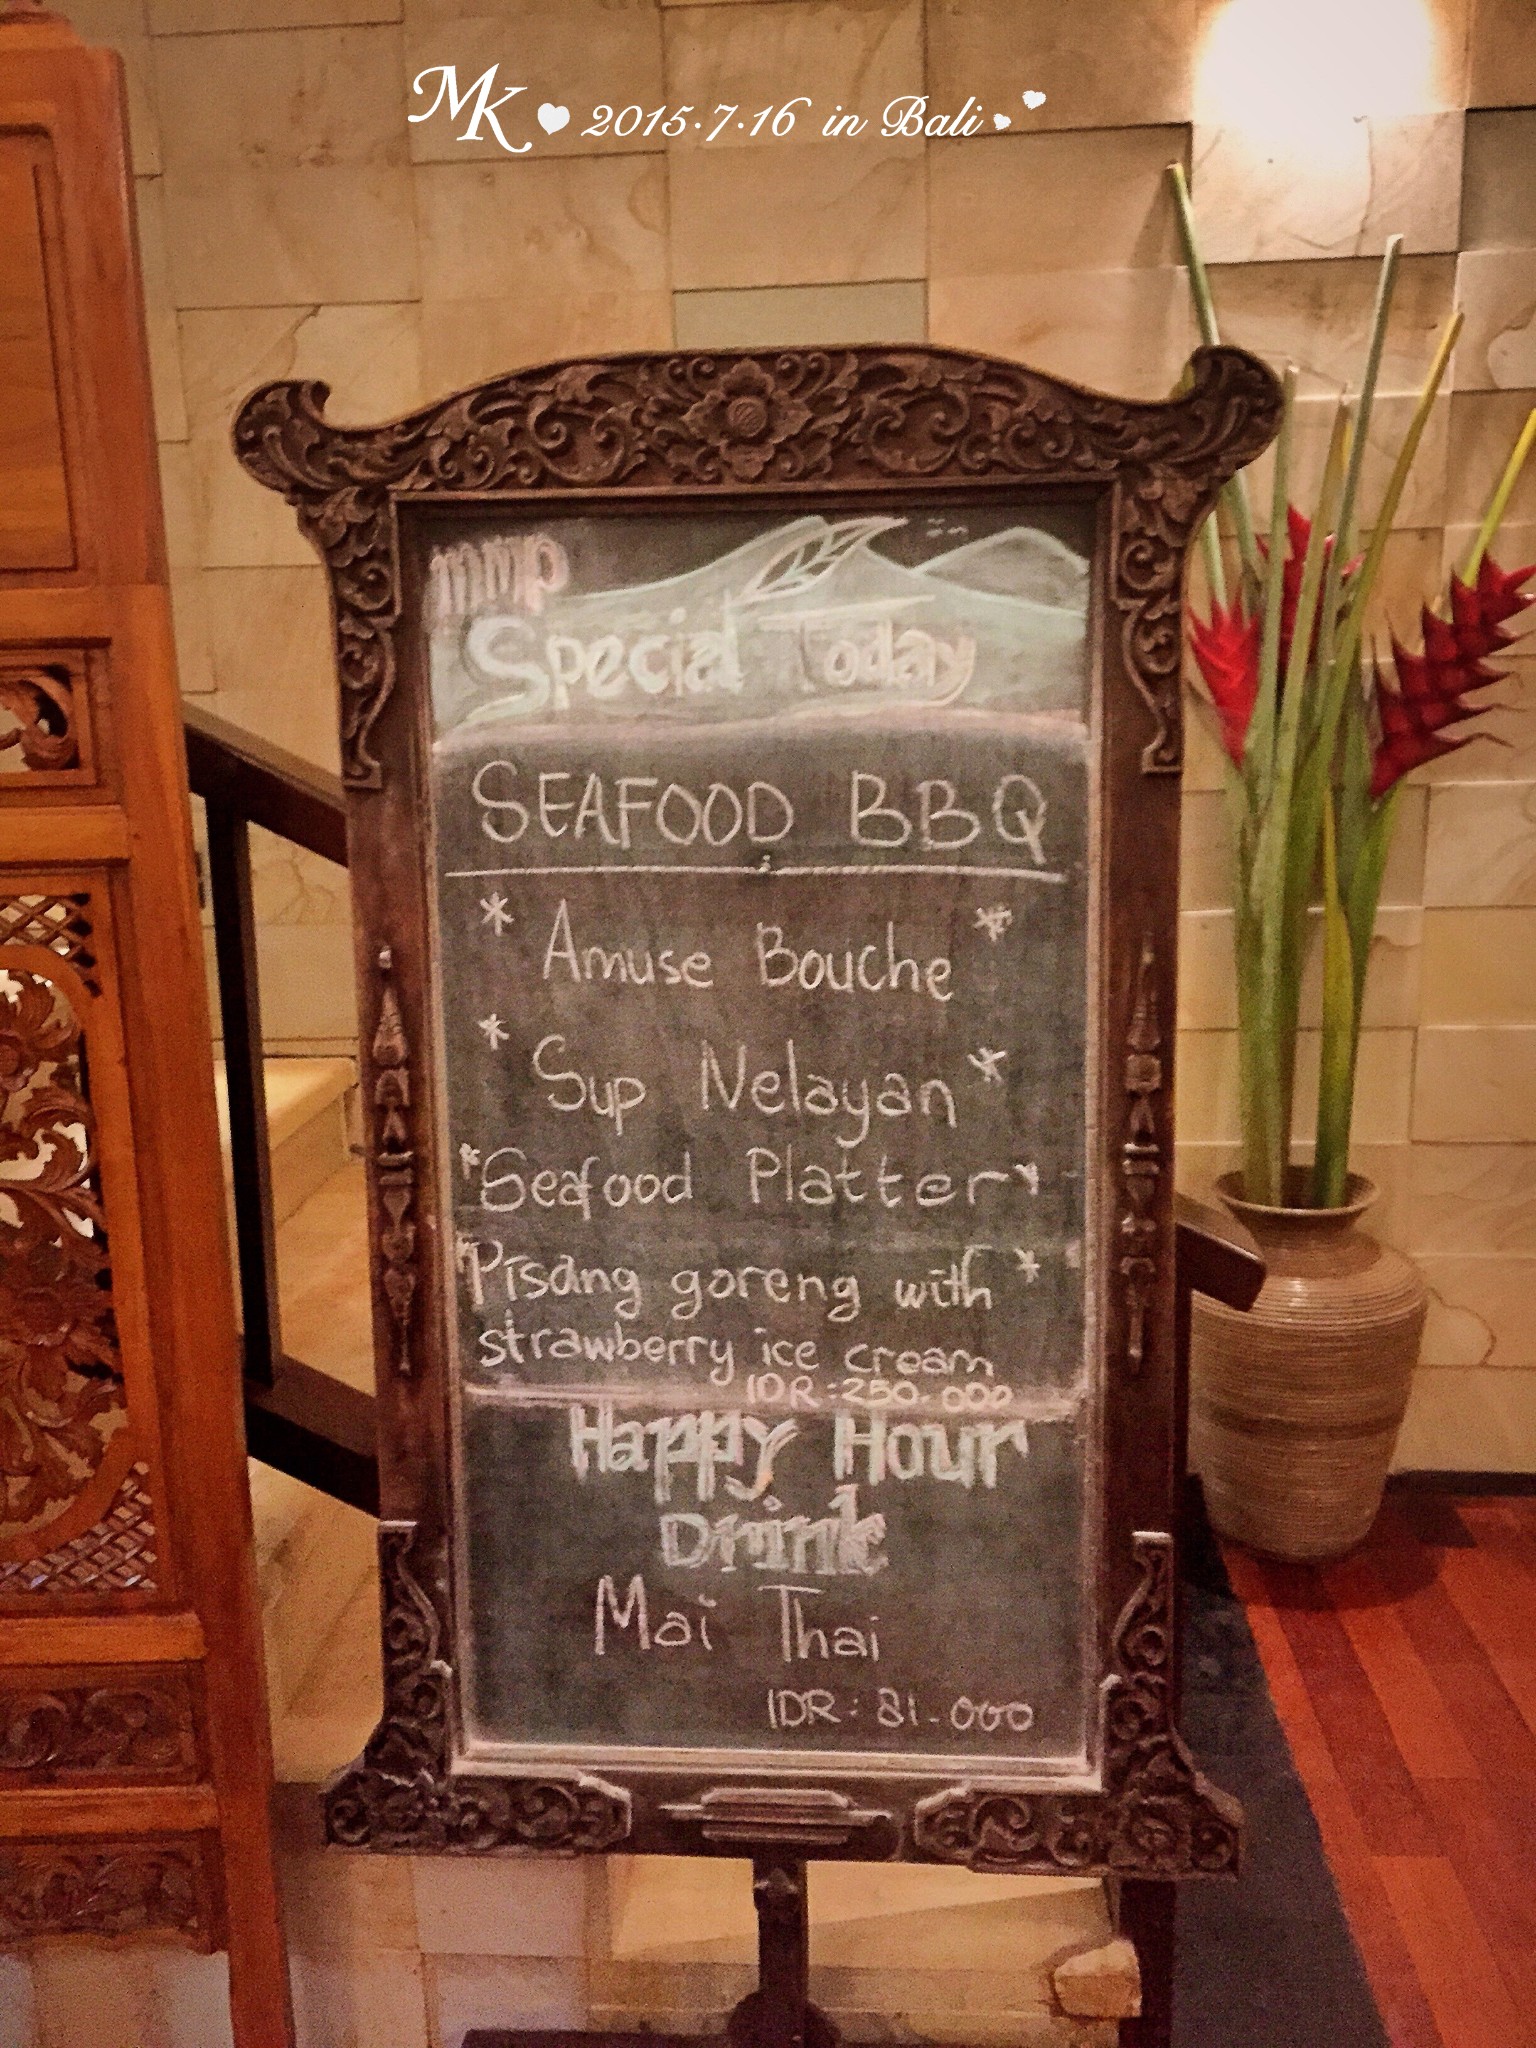 MK ♥ 2015.7.16 in Bali
mmp
Special Today
SEAFOOD BBQ
* Amuse Bouche *
* Sup Nelayan *
* Seafood Platter *
* Pisang goreng with *
strawberry ice cream
IDR: 250.000
Happy Hour
Drink
Mai Thai
IDR: 81.000